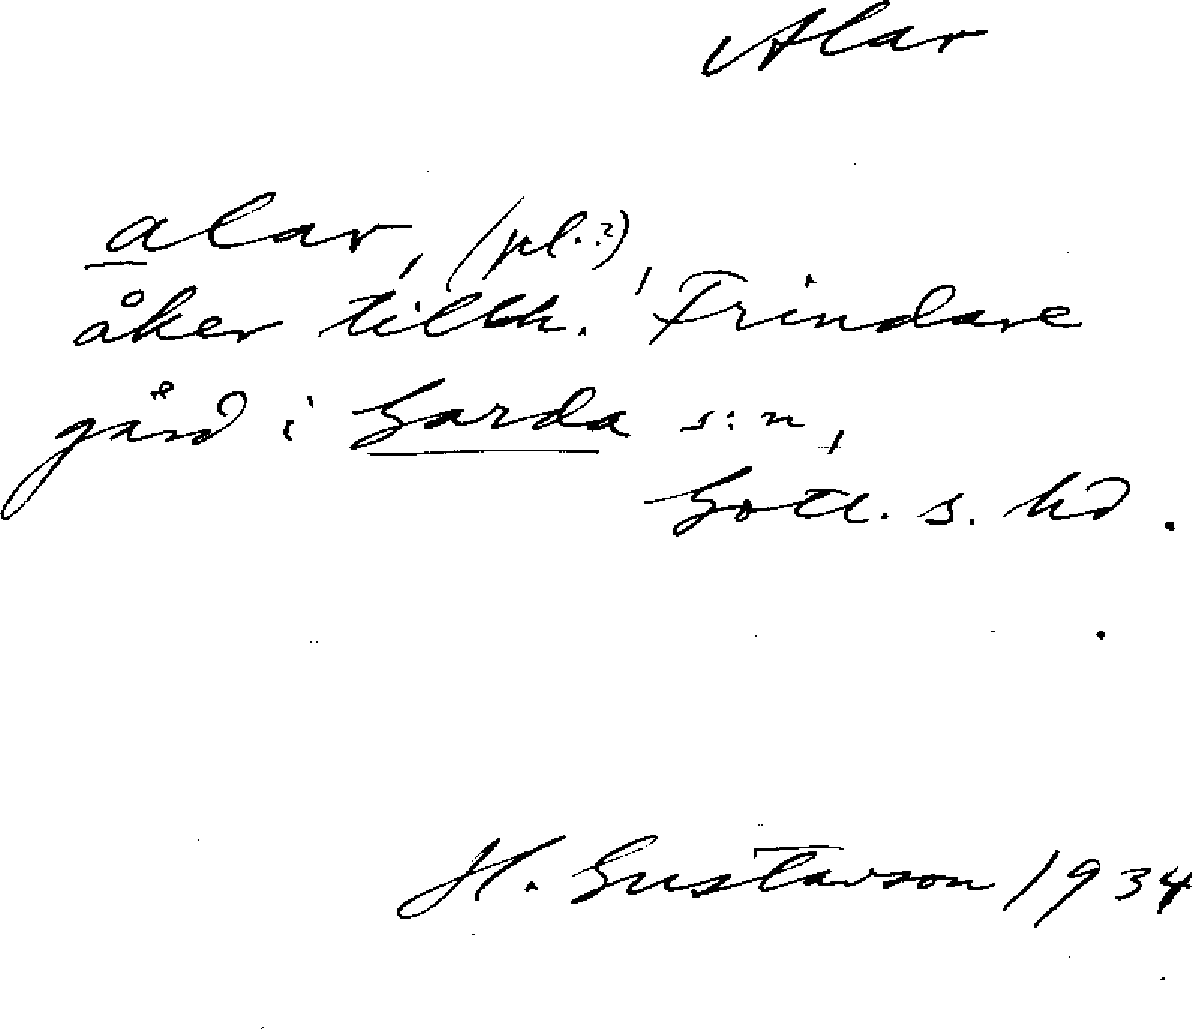 Alar
alar, (pl.?),
åker tillh. Frindare
gård i Garda s:n,
Gotl. s. hd.
H. Gustavson 1934